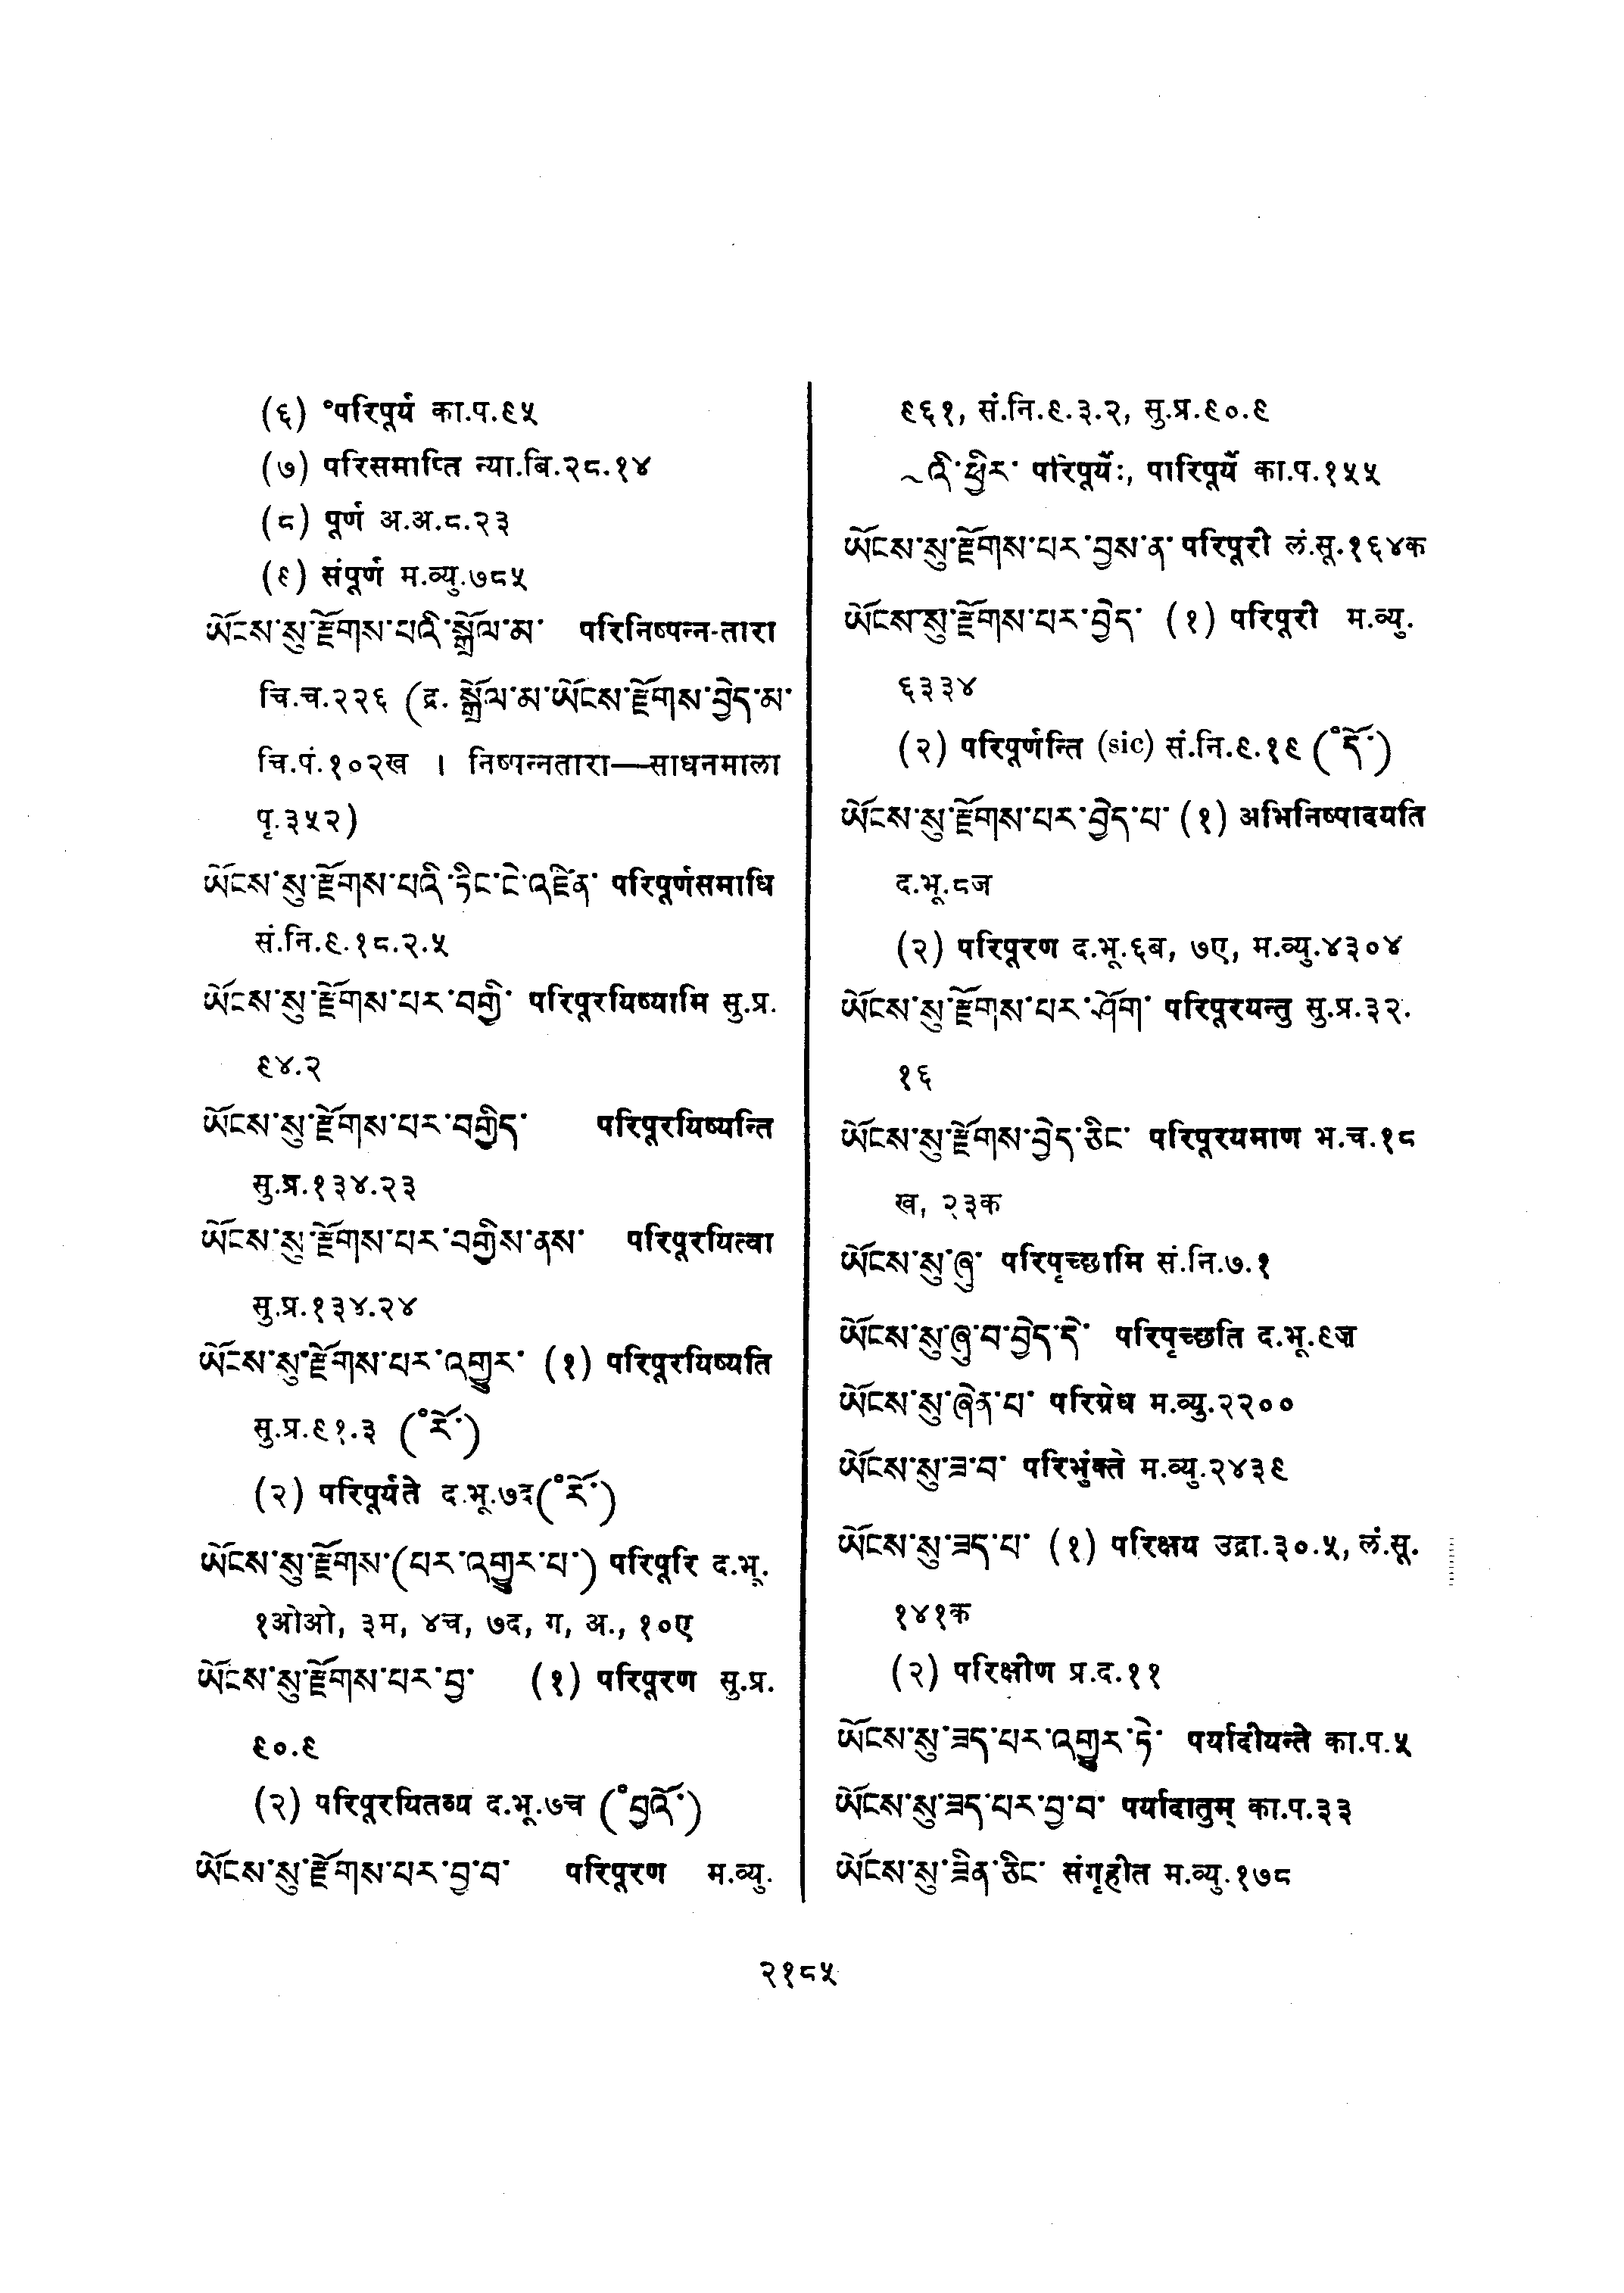 (६) °परिपूर्य का.प.९५
(७) परिसमाप्ति न्या.बि.२८.१४
(८) पूर्ण अ.अ.८.२३
(९) संपूर्ण म.व्यु.७८५
ཡོངས་སུ་རྫོགས་པའི་སྒྲོལ་མ་ परिनिष्पन्न-तारा
चि.च.२२६ (द्र. སྒྲོལ་མ་ཡོངས་རྫོགས་བྱེད་མ་
चि.पं.१०२ख । निष्पन्नतारा—साधनमाला
पृ.३५२)
ཡོངས་སུ་རྫོགས་པའི་ཏིང་ངེ་འཛིན་ परिपूर्णसमाधि
सं.नि.९.१८.२.५
ཡོངས་སུ་རྫོགས་པར་བགྱི་ परिपूरयिष्यामि सु.प्र.
९४.२
ཡོངས་སུ་རྫོགས་པར་བགྱིད་ परिपूरयिष्यन्ति
सु.प्र.१३४.२३
ཡོངས་སུ་རྫོགས་པར་བགྱིས་ནས་ परिपूरयित्वा
सु.प्र.१३४.२४
ཡོངས་སུ་རྫོགས་པར་འགྱུར་ (१) परिपूरयिष्यति
सु.प्र.९१.३ (°རོ་)
(२) परिपूर्यते द.भू.७द(°རོ་)
ཡོངས་སུ་རྫོགས་(པར་འགྱུར་པ་) परिपूरि द.भू.
१ओओ, ३म, ४च, ७द, ग, अ., १०ए
ཡོངས་སུ་རྫོགས་པར་བྱ་ (१) परिपूरण सु.प्र.
९०.९
(२) परिपूरयितव्य द.भू.७च (°བྱའོ་)
ཡོངས་སུ་རྫོགས་པར་བྱ་བ་ परिपूरण म.व्यु.
९६१, सं.नि.९.३.२, सु.प्र.९०.९
~འི་ཕྱིར་ परिपूर्यैः, पारिपूर्यै का.प.१५५
ཡོངས་སུ་རྫོགས་པར་བྱས་ན་ परिपूरी लं.सू.१६४क
ཡོངས་སུ་རྫོགས་པར་བྱེད་ (१) परिपूरी म.व्यु.
६३३४
(२) परिपूर्णन्ति (sic) सं.नि.९.१९ (°དོ་)
ཡོངས་སུ་རྫོགས་པར་བྱེད་པ་ (१) अभिनिष्पादयति
द.भू.८ज
(२) परिपूरण द.भू.६ब, ७ए, म.व्यु.४३०४
ཡོངས་སུ་རྫོགས་པར་ཤོག་ परिपूरयन्तु सु.प्र.३२.
१६
ཡོངས་སུ་རྫོགས་བྱེད་ཅིང་ परिपूरयमाण भ.च.१८
ख, २३क
ཡོངས་སུ་ཞུ་ परिपृच्छामि सं.नि.७.१
ཡོངས་སུ་ཞུ་བ་བྱེད་དེ་ परिपृच्छति द.भू.९ज
ཡོངས་སུ་ཞེན་པ་ परिग्रेध म.व्यु.२२००
ཡོངས་སུ་ཟ་བ་ परिभुंक्ते म.व्यु.२४३९
ཡོངས་སུ་ཟད་པ་ (१) परिक्षय उद्रा.३०.५, लं.सू.
१४१क
(२) परिक्षीण प्र.द.११
ཡོངས་སུ་ཟད་པར་འགྱུར་ཏེ་ पर्यादीयन्ते का.प.५
ཡོངས་སུ་ཟད་པར་བྱ་བ་ पर्यादातुम् का.प.३३
ཡོངས་སུ་ཟིན་ཅིང་ संगृहीत म.व्यु.१७८
२१८५